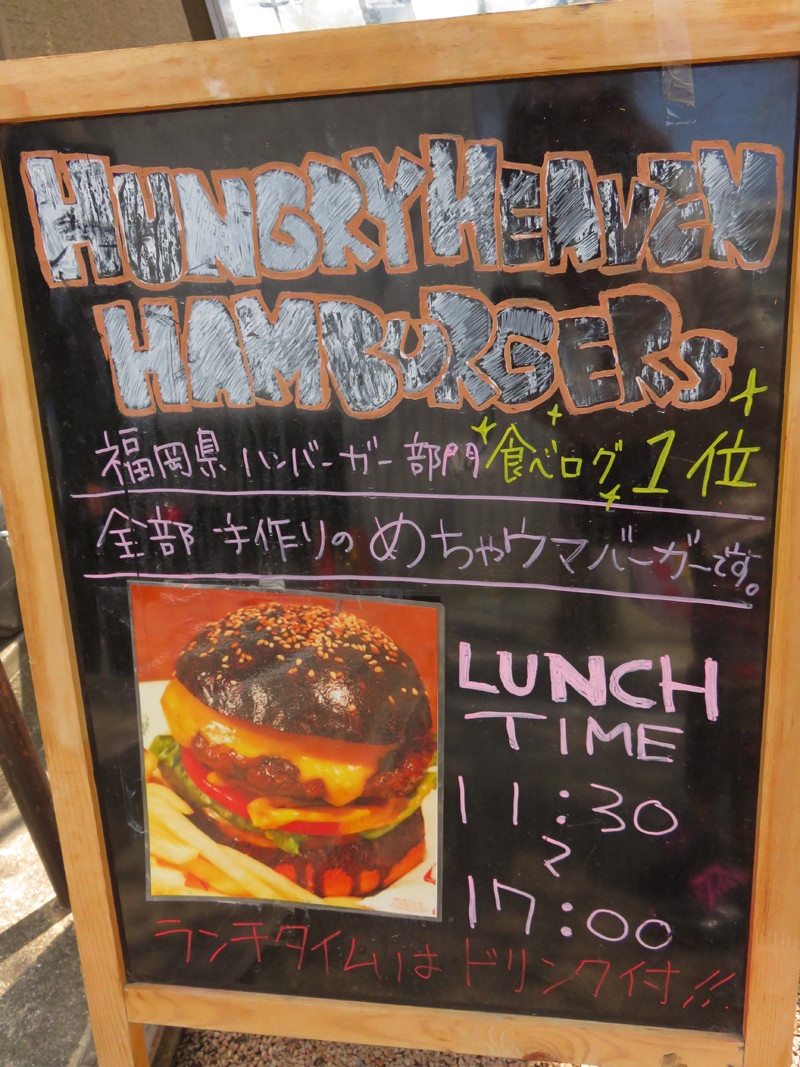 HUNGRY HEAVEN
HAMBURGERS
福岡県 ハンバーガー部門 食べログ 1位
全部 手作りの めちゃウマバーガーです。
LUNCH
TIME
11:30
〜
17:00
ランチタイムは ドリンク付!!